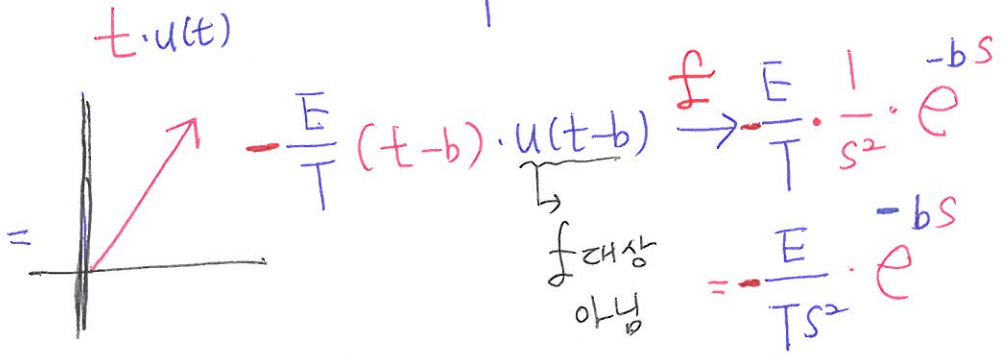 t·u(t)
= -E/T (t-b)·u(t-b) £→ -E/T · 1/s² · e^-bs
£대상
아님
= -E/TS² · e^-bs